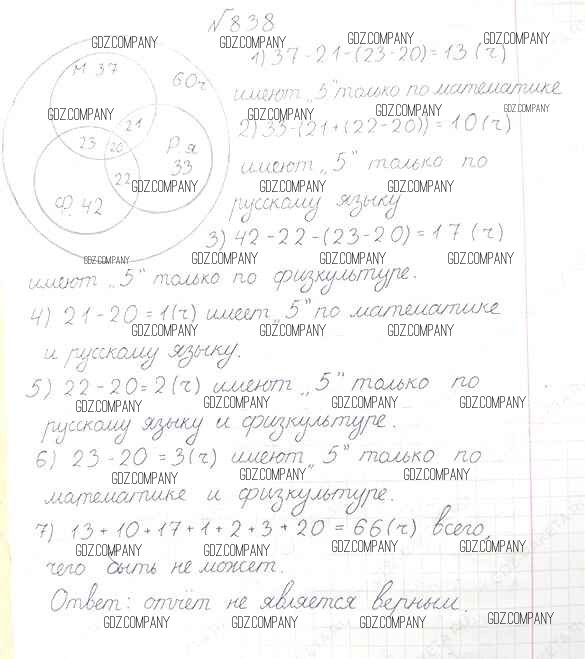 №838
GDZ.COMPANY GDZ.COMPANY GDZ.COMPANY GDZ.COMPANY
1) 37 - 21 - (23 - 20) = 13 (ч)
М 37
60ч
имеют „5" только по математике
GDZ.COMPANY GDZ.COMPANY GDZ.COMPANY GDZ.COMPANY
21
2) 33 - (21 + (22 - 20)) = 10 (ч)
23 20 Р я
33
имеют „5" только по
22
GDZ.COMPANY GDZ.COMPANY GDZ.COMPANY GDZ.COMPANY
Ф. 42
русскому языку
3) 42 - 22 - (23 - 20) = 17 (ч)
GDZ.COMPANY GDZ.COMPANY GDZ.COMPANY GDZ.COMPANY
имеют „5" только по физкультуре.
4) 21 - 20 = 1 (ч) имеет „5" по математике
GDZ.COMPANY GDZ.COMPANY GDZ.COMPANY
и русскому языку.
5) 22 - 20 = 2 (ч) имеют „5" только по
GDZ.COMPANY GDZ.COMPANY GDZ.COMPANY GDZ.COMPANY
русскому языку и физкультуре.
6) 23 - 20 = 3 (ч) имеют „5" только по
GDZ.COMPANY GDZ.COMPANY GDZ.COMPANY
математике и физкультуре.
7) 13 + 10 + 17 + 1 + 2 + 3 + 20 = 66 (ч) всего,
GDZ.COMPANY GDZ.COMPANY GDZ.COMPANY GDZ.COMPANY
чего быть не может.
Ответ: отчёт не является верным.
GDZ.COMPANY GDZ.COMPANY GDZ.COMPANY GDZ.COMPANY